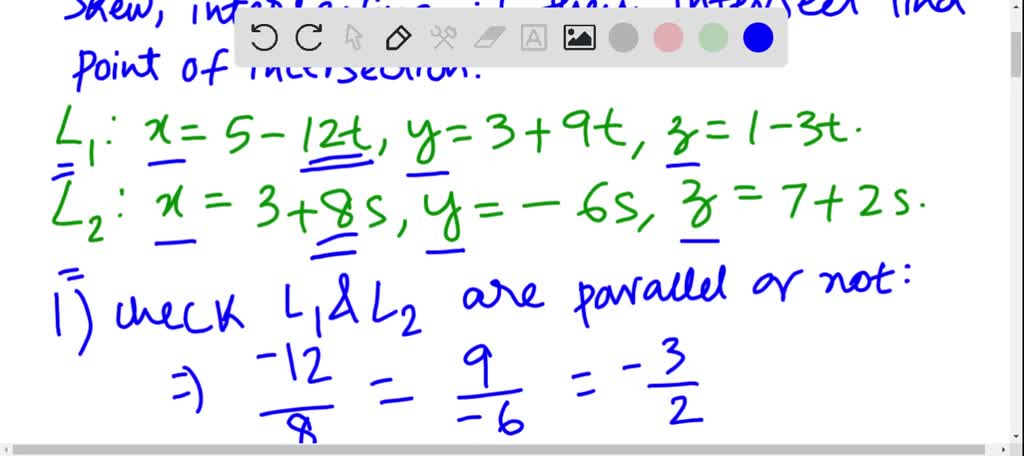 skew, intersect find
point of intersection.
L₁: x = 5 - 12t, y = 3 + 9t, z = 1 - 3t.
L₂: x = 3 + 8s, y = - 6s, z = 7 + 2s.
1) check L₁ & L₂ are parallel or not:
⇒) -12/8 = 9/-6 = -3/2